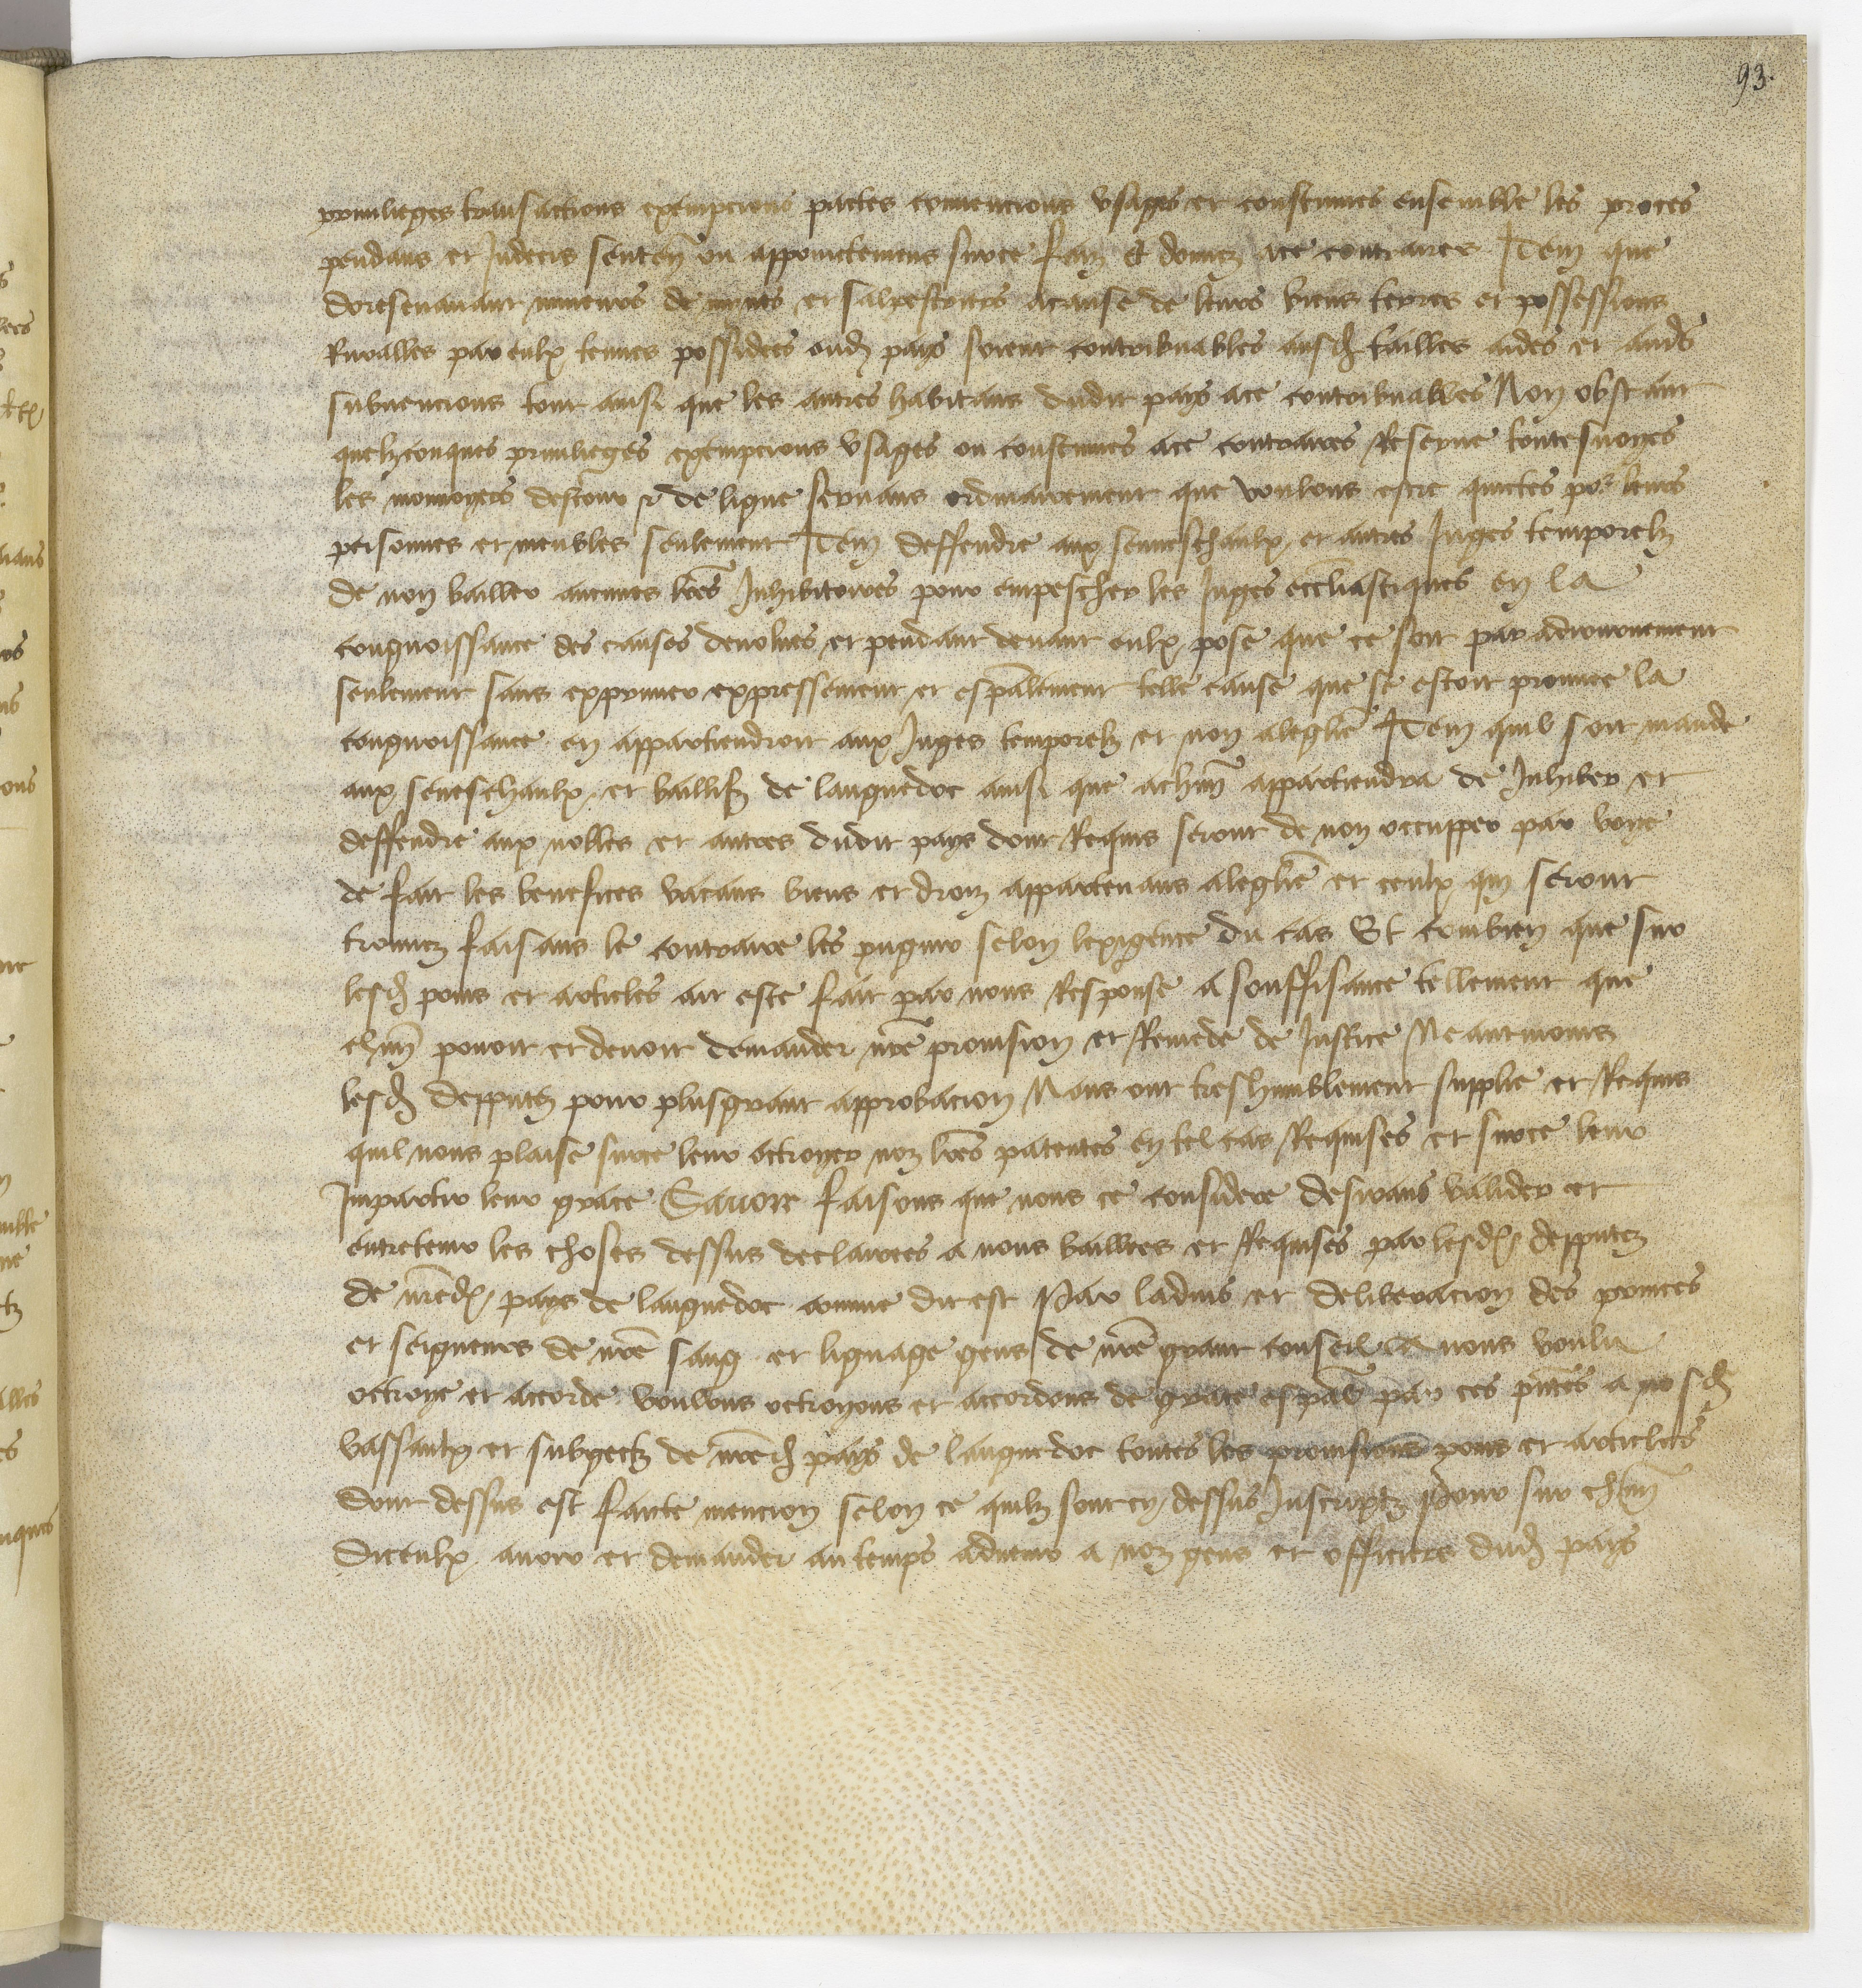 93.
priuilieges transactions exempcions pactes conuencions vsages et coustumes ensemble les proces
pendans et Indecis senten̄ ou appoinctemens surce faiz et donnez ace contraires Item que
doresenauant mineurs de mynes et salpestriers acause de leurs biens terres et possessions
Ruralles par eulx tenues possidees oud pays soient contribuables ausd tailles aides et aud̄
subuencions tout ainsi que les autres habitans dudit pays ace contribuables Non obstant
quelzconques priuilieges exempcions vsages ou coustumes ace contraires Reserue toutesuoyes
les monnoyers destour et de ligne seruans ordinairement que voulons estre quictes por leurs
personnes et meubles seulement Item deffendre aux seneschaulx et autres Juges temporelz
de non bailler aucunes lr̄es Inhibitoires pour empescher les Juges eccl̄iastiques en la
congnoissance des causes deuolues et pendant deuant eulx pose que ce soit par adiournement
seulement sans exprimer expressement et esp̄alement telle cause que se estoit prouuee la
congnoissance en appartiendroit aux Juges temporelz et non aleglīe Item quil soit mande
aux seneschaulx et baillifz de languedoc ainsi que achūn appartiendra de Inhiber et
deffendre aux nobles et autres dudit pays dont Requis seront de non occupper par voye
de fait les benefices vacans biens et droiz appartenans aleglīe et ceulx qui seront
trouuez faisans le contraire les pugnir selon lexigence du cas Et combien que sur
lesd poins et articles ait este fait par nous Response a souffisance tellement que
chūn pouoit et deuoit demander nr̄e prouision et Remede de Justice Neantmoins
lesd depputez pour plusgrant approbacion Nous ont treshumblement supplie et Requis
quil nous plaise surce leur octroyer noz lr̄es patentes en tel cas Requises et surce leur
Impartir leur grace Sauoir faisons que nous ce considere desirans valider et
entretenir les choses dessus declairees a nous baillees et Requises par lesd depputez
de nr̄ed pays de languedoc comme dit est Par laduis et deliberacion des princes
et seigneurs de nr̄e sang et lignage gens de nr̄e grant conseil A nous voulu
octroye et accorde voulons octroyons et accordons de grace esp̄al par ces pn̄tes a nosd
vassaulx et subgectz de nr̄ed pays de languedoc toutes les prouisions poins et articles
dont dessus est faicte mencion selon ce quilz sont cy dessus Inscriptz Pour sur chūn
Diceulx auoir et demander autemps aduenir a noz gens et officiers dud pays